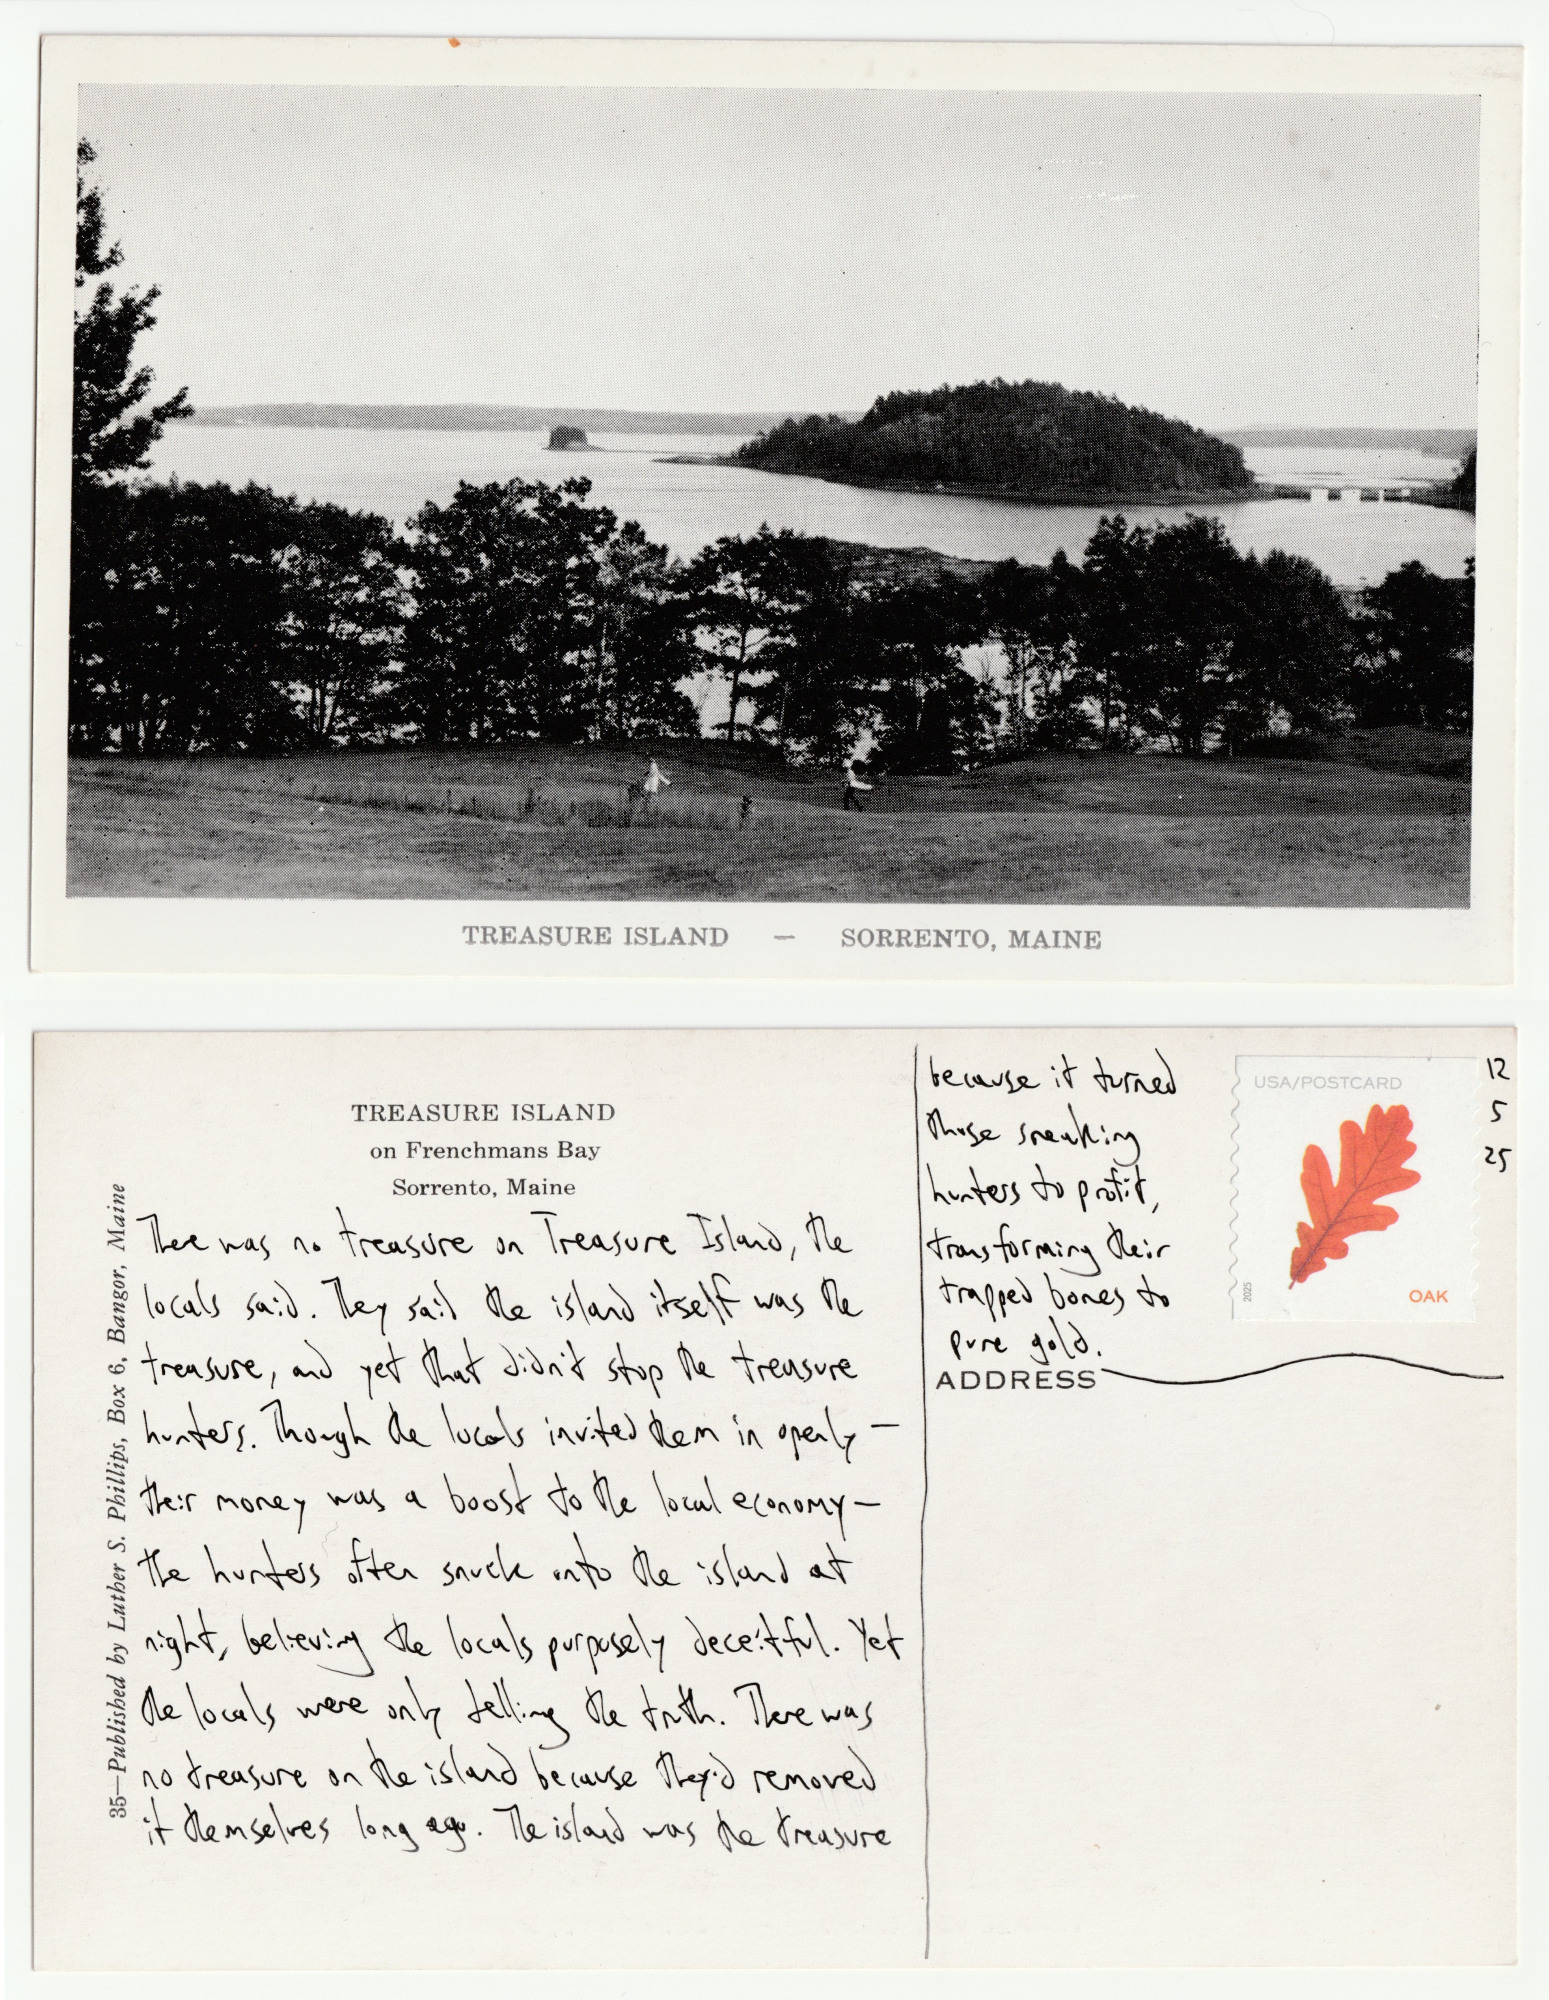 TREASURE ISLAND — SORRENTO, MAINE
TREASURE ISLAND
on Frenchmans Bay
Sorrento, Maine
35—Published by Luther S. Phillips, Box 6, Bangor, Maine
There was no treasure on Treasure Island, the
locals said. They said the island itself was the
treasure, and yet that didn't stop the treasure
hunters. Though the locals invited them in openly—
their money was a boost to the local economy—
the hunters often snuck onto the island at
night, believing the locals purposely deceitful. Yet
the locals were only telling the truth. There was
no treasure on the island because they'd removed
it themselves long ago. The island was the treasure
because it turned
those sneaking
hunters to profit,
transforming their
trapped bones to
pure gold.
ADDRESS
USA/POSTCARD
2025
OAK
12
5
25